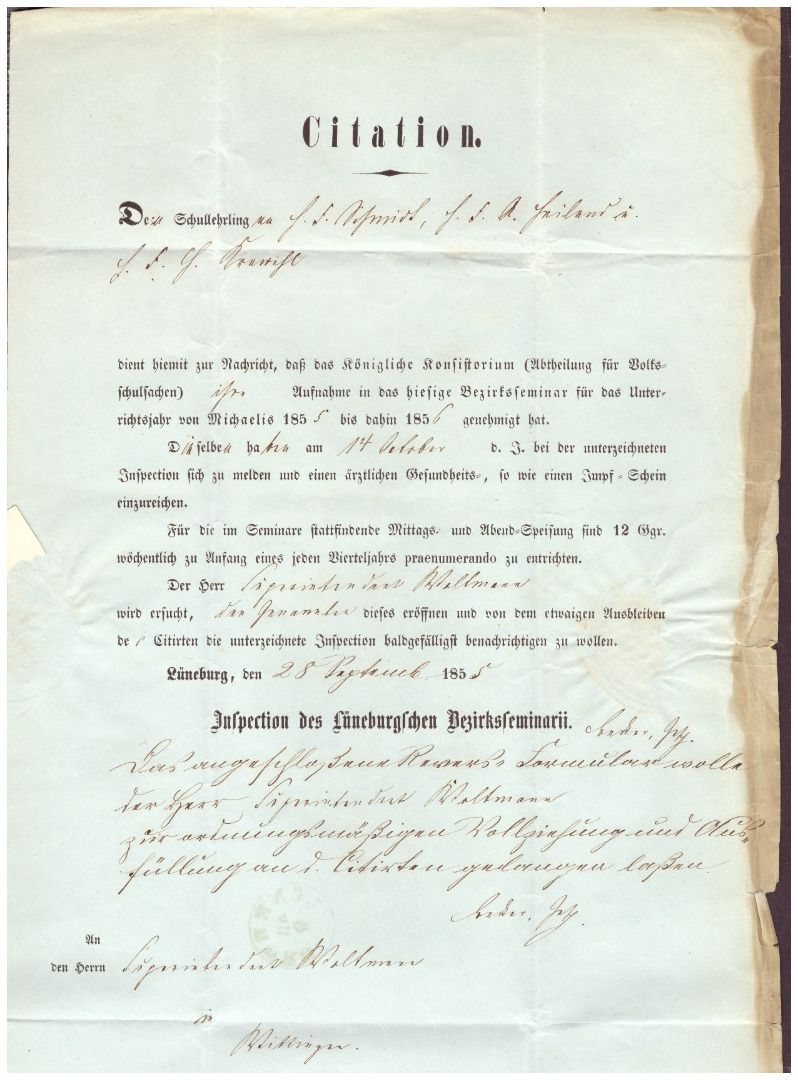 Citation.
Den Schullehrlingen H. F. Schmidt, H. F. A. Heiland u.
H. F. Ch. Krewehl
dient hiemit zur Nachricht, daß das Königliche Konsistorium (Abtheilung für Volks-
schulsachen) ihre Aufnahme in das hiesige Bezirksseminar für das Unter-
richtsjahr von Michaelis 1855 bis dahin 1856 genehmigt hat.
Dieselben haben am 14 October d. J. bei der unterzeichneten
Inspection sich zu melden und einen ärztlichen Gesundheits-, so wie einen Impf-Schein
einzureichen.
Für die im Seminare stattfindende Mittags- und Abend-Speisung sind 12 Ggr.
wöchentlich zu Anfang eines jeden Vierteljahrs praenumerando zu entrichten.
Der Herr Superintendent Woltmann
wird ersucht, den Genannten dieses eröffnen und von dem etwaigen Ausbleiben
der Citirten die unterzeichnete Inspection baldgefälligst benachrichtigen zu wollen.
Lüneburg, den 28 Septemb. 1855
Inspection des Lüneburgschen Bezirksseminarii.
Das angeschloßene Revers-Formular wolle
der Herr Superintendent Woltmann
zur ordnungsmäßigen Vollziehung und Aus-
füllung an d. Citirten gelangen laßen.
An
den Herrn Superintendent Woltmann
in
Wittingen.